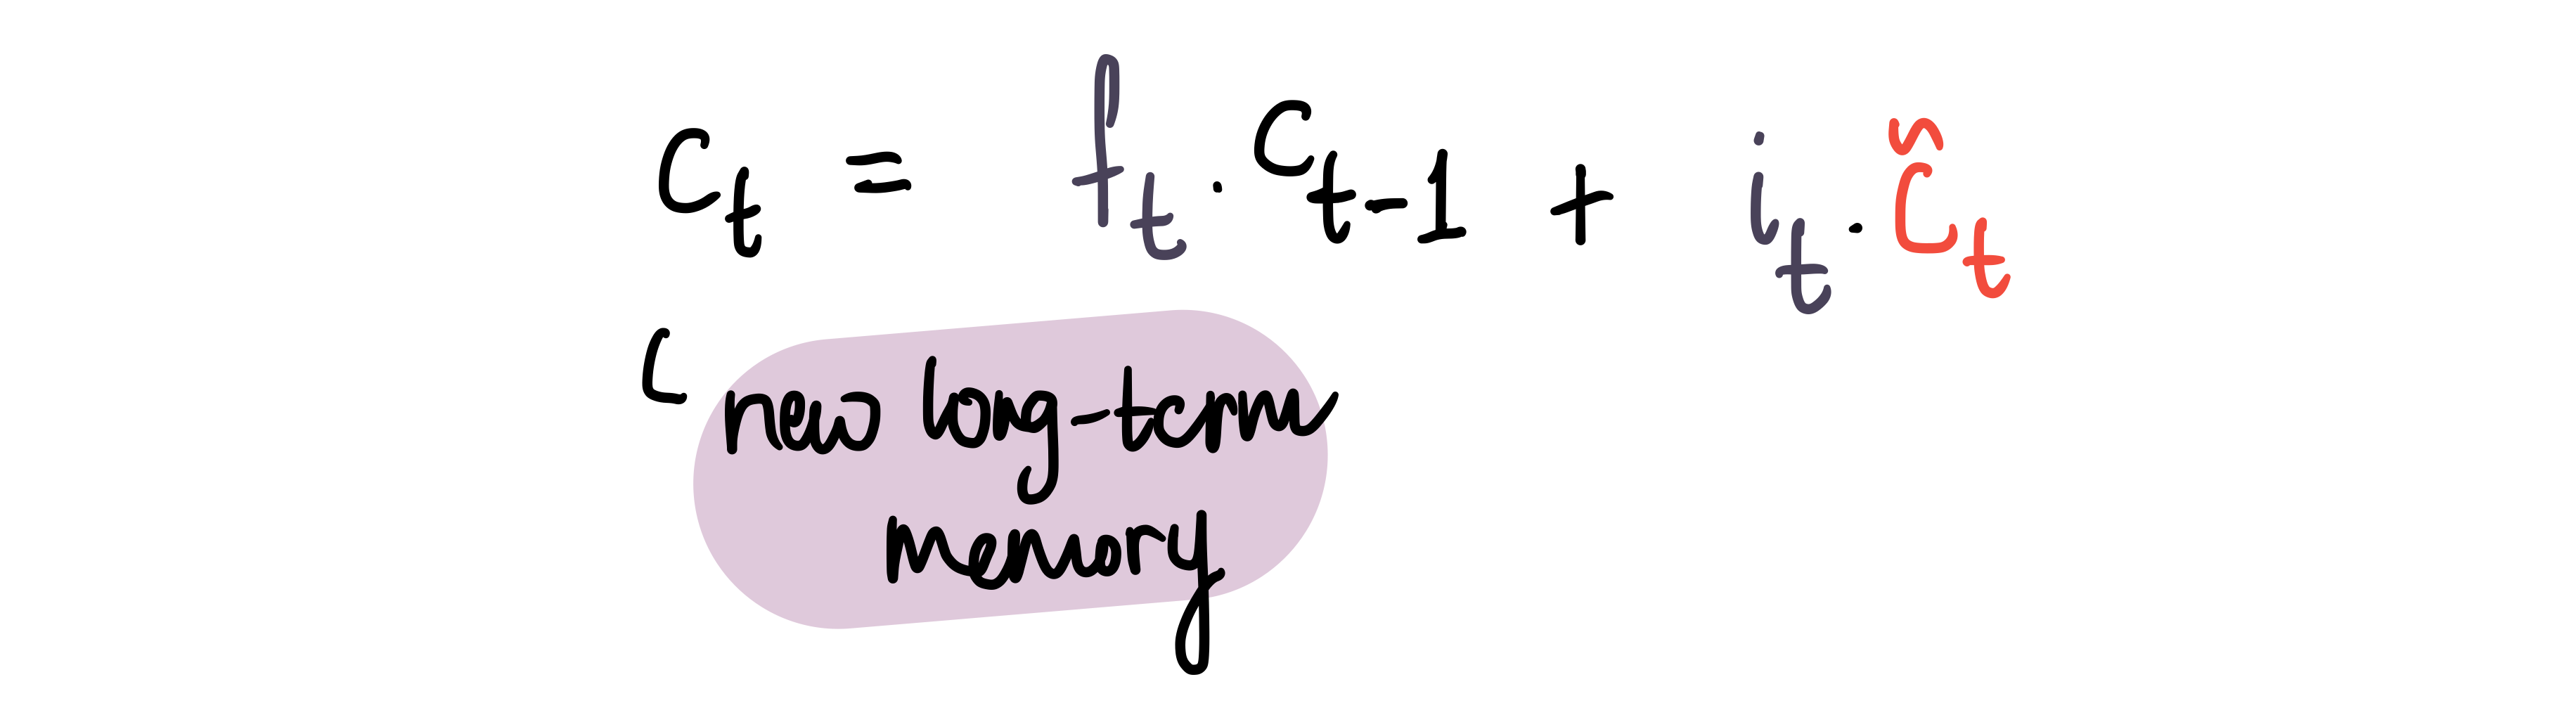 C_t = f_t · C_{t-1} + i_t · C̃_t
new long-term
memory